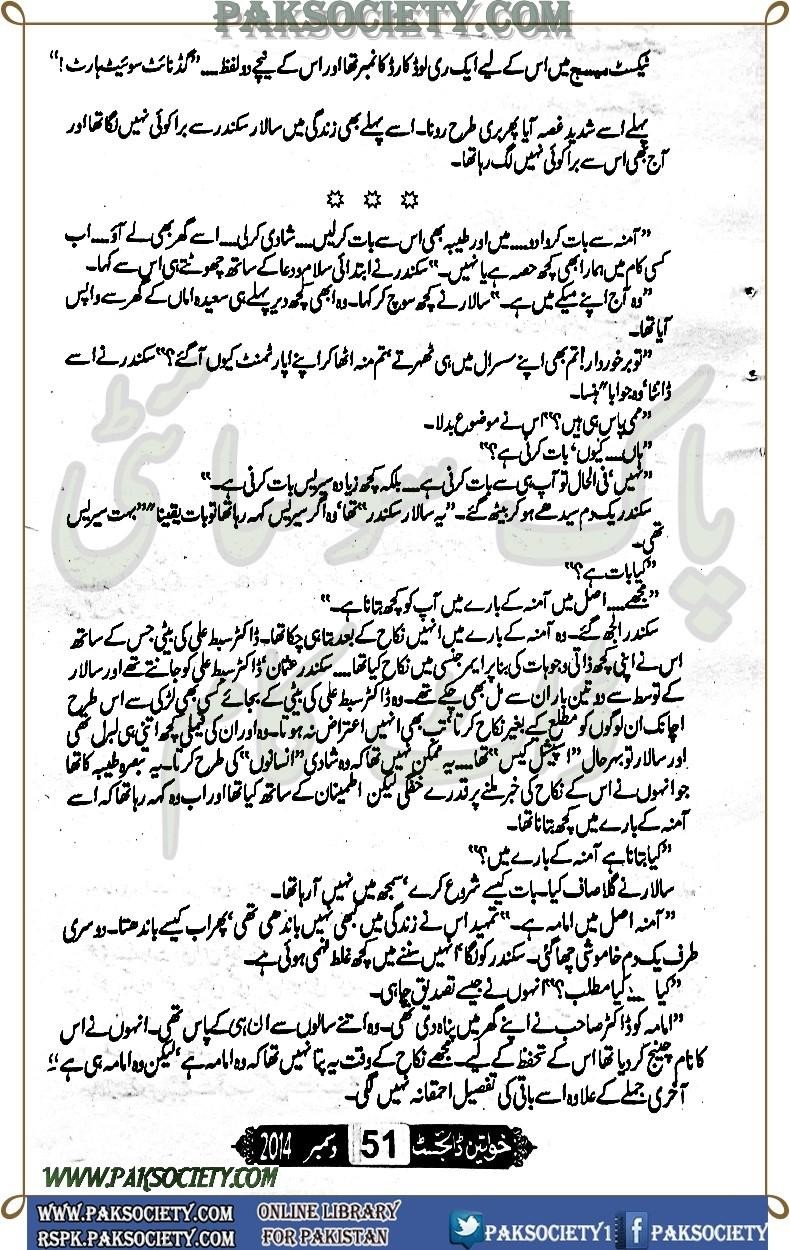 PAKSOCIETY.COM
ٹیکسٹ میسج میں اس کے لیے ایک ری لوڈ کارڈ کا نمبر تھا اور اس کے نیچے دو لفظ۔۔۔۔ "گڈ نائٹ سوئیٹ ہارٹ!"
پہلے اسے شدید غصہ آیا پھر بری طرح رونا۔ اسے پہلے بھی زندگی میں سالار سکندر سے برا کوئی نہیں لگا تھا اور
آج بھی اس سے برا کوئی نہیں لگ رہا تھا۔
"آمنہ سے بات کروا دو۔۔۔۔ میں اور طیبہ بھی اس سے بات کر لیں۔۔۔۔ شادی کرلی۔۔۔۔ اسے گھر بھی لے آؤ۔۔۔۔ اب
کسی کام میں ہمارا بھی کچھ حصہ ہے یا نہیں۔" سکندر نے ابتدائی سلام و دعا کے ساتھ چھوٹتے ہی اس سے کہا۔
"وہ آج اپنے میکے میں ہے۔" سالار نے کچھ سوچ کر کہا۔ وہ ابھی کچھ دیر پہلے ہی سعیدہ اماں کے گھر سے واپس
آیا تھا۔
"تو برخوردار! تم بھی اپنے سسرال میں ہی ٹھہرتے، تم منہ اٹھا کر اپنے اپارٹمنٹ کیوں آگئے؟" سکندر نے اسے
ڈانٹا، وہ جوابا" ہنسا۔
"ممی پاس ہی ہیں؟" اس نے موضوع بدلا۔
"ہاں۔۔۔۔ کیوں، بات کرنی ہے؟"
"نہیں، فی الحال تو آپ ہی سے بات کرنی ہے۔۔۔۔ بلکہ کچھ زیادہ سیریس بات کرنی ہے۔"
سکندر یک دم سیدھے ہو کر بیٹھ گئے۔ "یہ سالار سکندر" تھا، وہ اگر سیریس کہہ رہا تھا تو بات یقینا" "بہت سیریس
تھی۔
"کیا بات ہے؟"
"مجھے۔۔۔۔ اصل میں آمنہ کے بارے میں آپ کو کچھ بتانا ہے۔"
سکندر الجھ گئے۔ وہ آمنہ کے بارے میں انہیں نکاح کے بعد بتا ہی چکا تھا۔ ڈاکٹر سبط علی کی بیٹی جس کے ساتھ
اس نے اپنی کچھ ذاتی وجوہات کی بنا پر ایمرجنسی میں نکاح کیا تھا۔۔۔۔ سکندر عثمان، ڈاکٹر سبط علی کو جانتے تھے اور سالار
کے توسط سے دو تین بار ان سے مل بھی چکے تھے۔ وہ ڈاکٹر سبط علی کی بیٹی کے بجائے کسی بھی لڑکی سے اس طرح
اچانک ان لوگوں کو مطلع کیے بغیر نکاح کرتا، تب بھی انہیں اعتراض نہ ہوتا۔ وہ اور ان کی فیملی کچھ اتنی ہی لبرل تھی
اور سالار تو بہرحال "اسپیشل کیس" تھا۔۔۔۔ یہ ممکن نہیں تھا کہ وہ شادی "انسانوں" کی طرح کرتا۔ یہ تبصرہ طیبہ کا تھا
جو انہوں نے اس کے نکاح کی خبر ملنے پر قدرے خفگی لیکن اطمینان کے ساتھ کیا تھا اور اب وہ کہہ رہا تھا کہ اسے
آمنہ کے بارے میں کچھ بتانا تھا۔
"کیا بتانا ہے آمنہ کے بارے میں؟"
سالار نے گلا صاف کیا۔ بات کیسے شروع کرے، سمجھ میں نہیں آرہا تھا۔
"آمنہ اصل میں امامہ ہے۔" تمہید اس نے زندگی میں کبھی نہیں باندھی تھی، پھر اب کیسے باندھتا۔ دوسری
طرف یک دم خاموشی چھا گئی۔ سکندر کو لگا، انہیں سننے میں کچھ غلط فہمی ہوئی ہے۔
"کیا ۔۔۔۔ کیا مطلب؟" انہوں نے جیسے تصدیق چاہی۔
"امامہ کو ڈاکٹر صاحب نے اپنے گھر میں پناہ دی تھی۔ وہ اتنے سالوں سے ان ہی کے پاس تھی۔ انہوں نے اس
کا نام چینج کر دیا تھا اس کے تحفظ کے لیے۔ مجھے نکاح کے وقت یہ پتا نہیں تھا کہ وہ امامہ ہے، لیکن وہ امامہ ہی ہے۔"
آخری جملے کے علاوہ اسے باقی کی تفصیل احمقانہ نہیں لگی۔
خواتین ڈائجسٹ 51 دسمبر 2014
WWW.PAKSOCIETY.COM
WWW.PAKSOCIETY.COM
RSPK.PAKSOCIETY.COM
ONLINE LIBRARY
FOR PAKISTAN
PAKSOCIETY1
PAKSOCIETY
پاک سوسائٹی
ڈاٹ کام